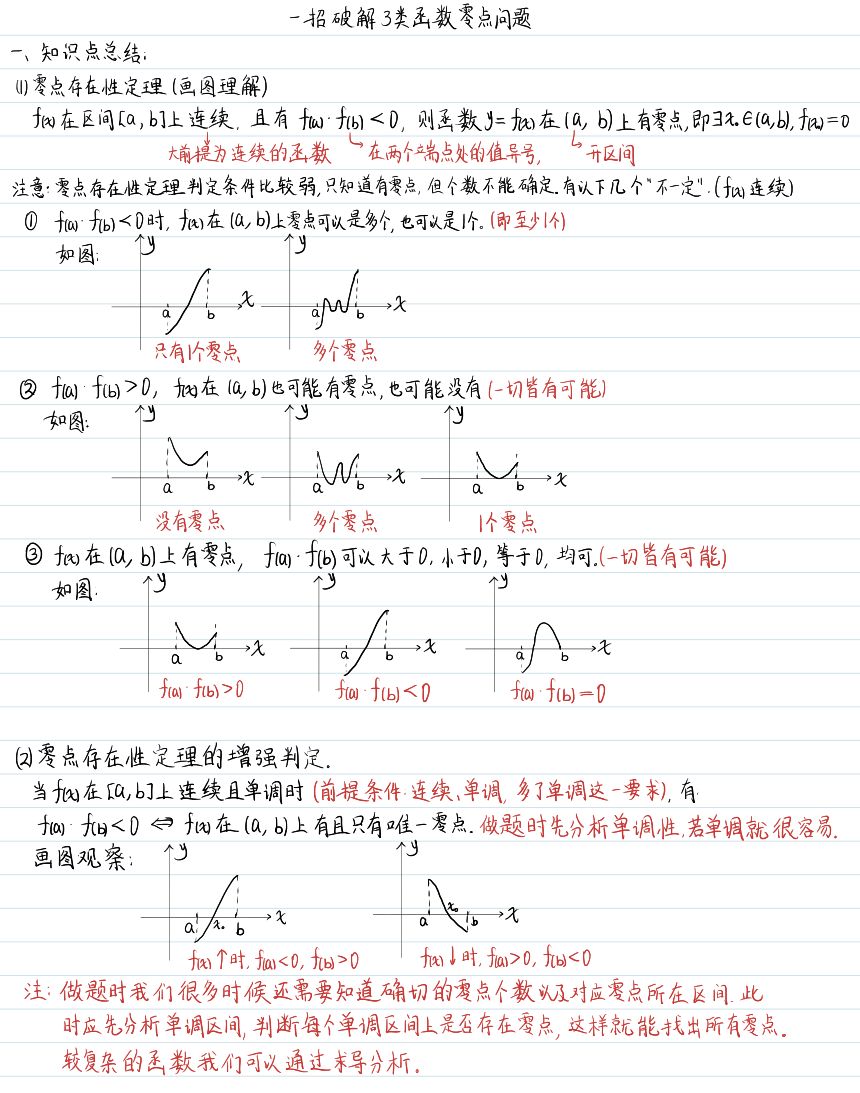 一招破解3类函数零点问题
一、知识点总结:
(1)零点存在性定理(画图理解)
f(x)在区间[a,b]上连续,且有f(a)·f(b)<0,则函数y=f(x)在(a,b)上有零点,即∃x₀∈(a,b),f(x₀)=0
大前提为连续的函数 在两个端点处的值异号, 开区间
注意:零点存在性定理判定条件比较弱,只知道有零点,但个数不能确定.有以下几个"不一定".(f(x)连续)
① f(a)·f(b)<0时,f(x)在(a,b)上零点可以是多个,也可以是1个。(即至少1个)
如图:
y y
a b x a b x
只有1个零点 多个零点
② f(a)·f(b)>0,f(x)在(a,b)也可能有零点,也可能没有(一切皆有可能)
如图:
y y y
a b x a b x a b x
没有零点 多个零点 1个零点
③ f(x)在(a,b)上有零点,f(a)·f(b)可以大于0.小于0,等于0,均可.(一切皆有可能)
如图.
y y y
a b x a b x a b x
f(a)·f(b)>0 f(a)·f(b)<0 f(a)·f(b)=0
(2)零点存在性定理的增强判定.
当f(x)在[a,b]上连续且单调时(前提条件:连续、单调,多了单调这一要求),有
f(a)·f(b)<0 ⇔ f(x)在(a,b)上有且只有唯一零点.做题时先分析单调性,若单调就很容易.
画图观察:
y y
a x₀ b x a x₀ b x
f(x)↑时,f(a)<0,f(b)>0 f(x)↓时,f(a)>0,f(b)<0
注:做题时我们很多时候还需要知道确切的零点个数以及对应零点所在区间.此
时应先分析单调区间,判断每个单调区间上是否存在零点,这样就能找出所有零点.
较复杂的函数我们可以通过求导分析.